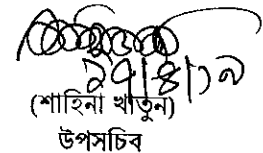 ২৭|৪|১৯
(শাহিনা খাতুন)
উপসচিব